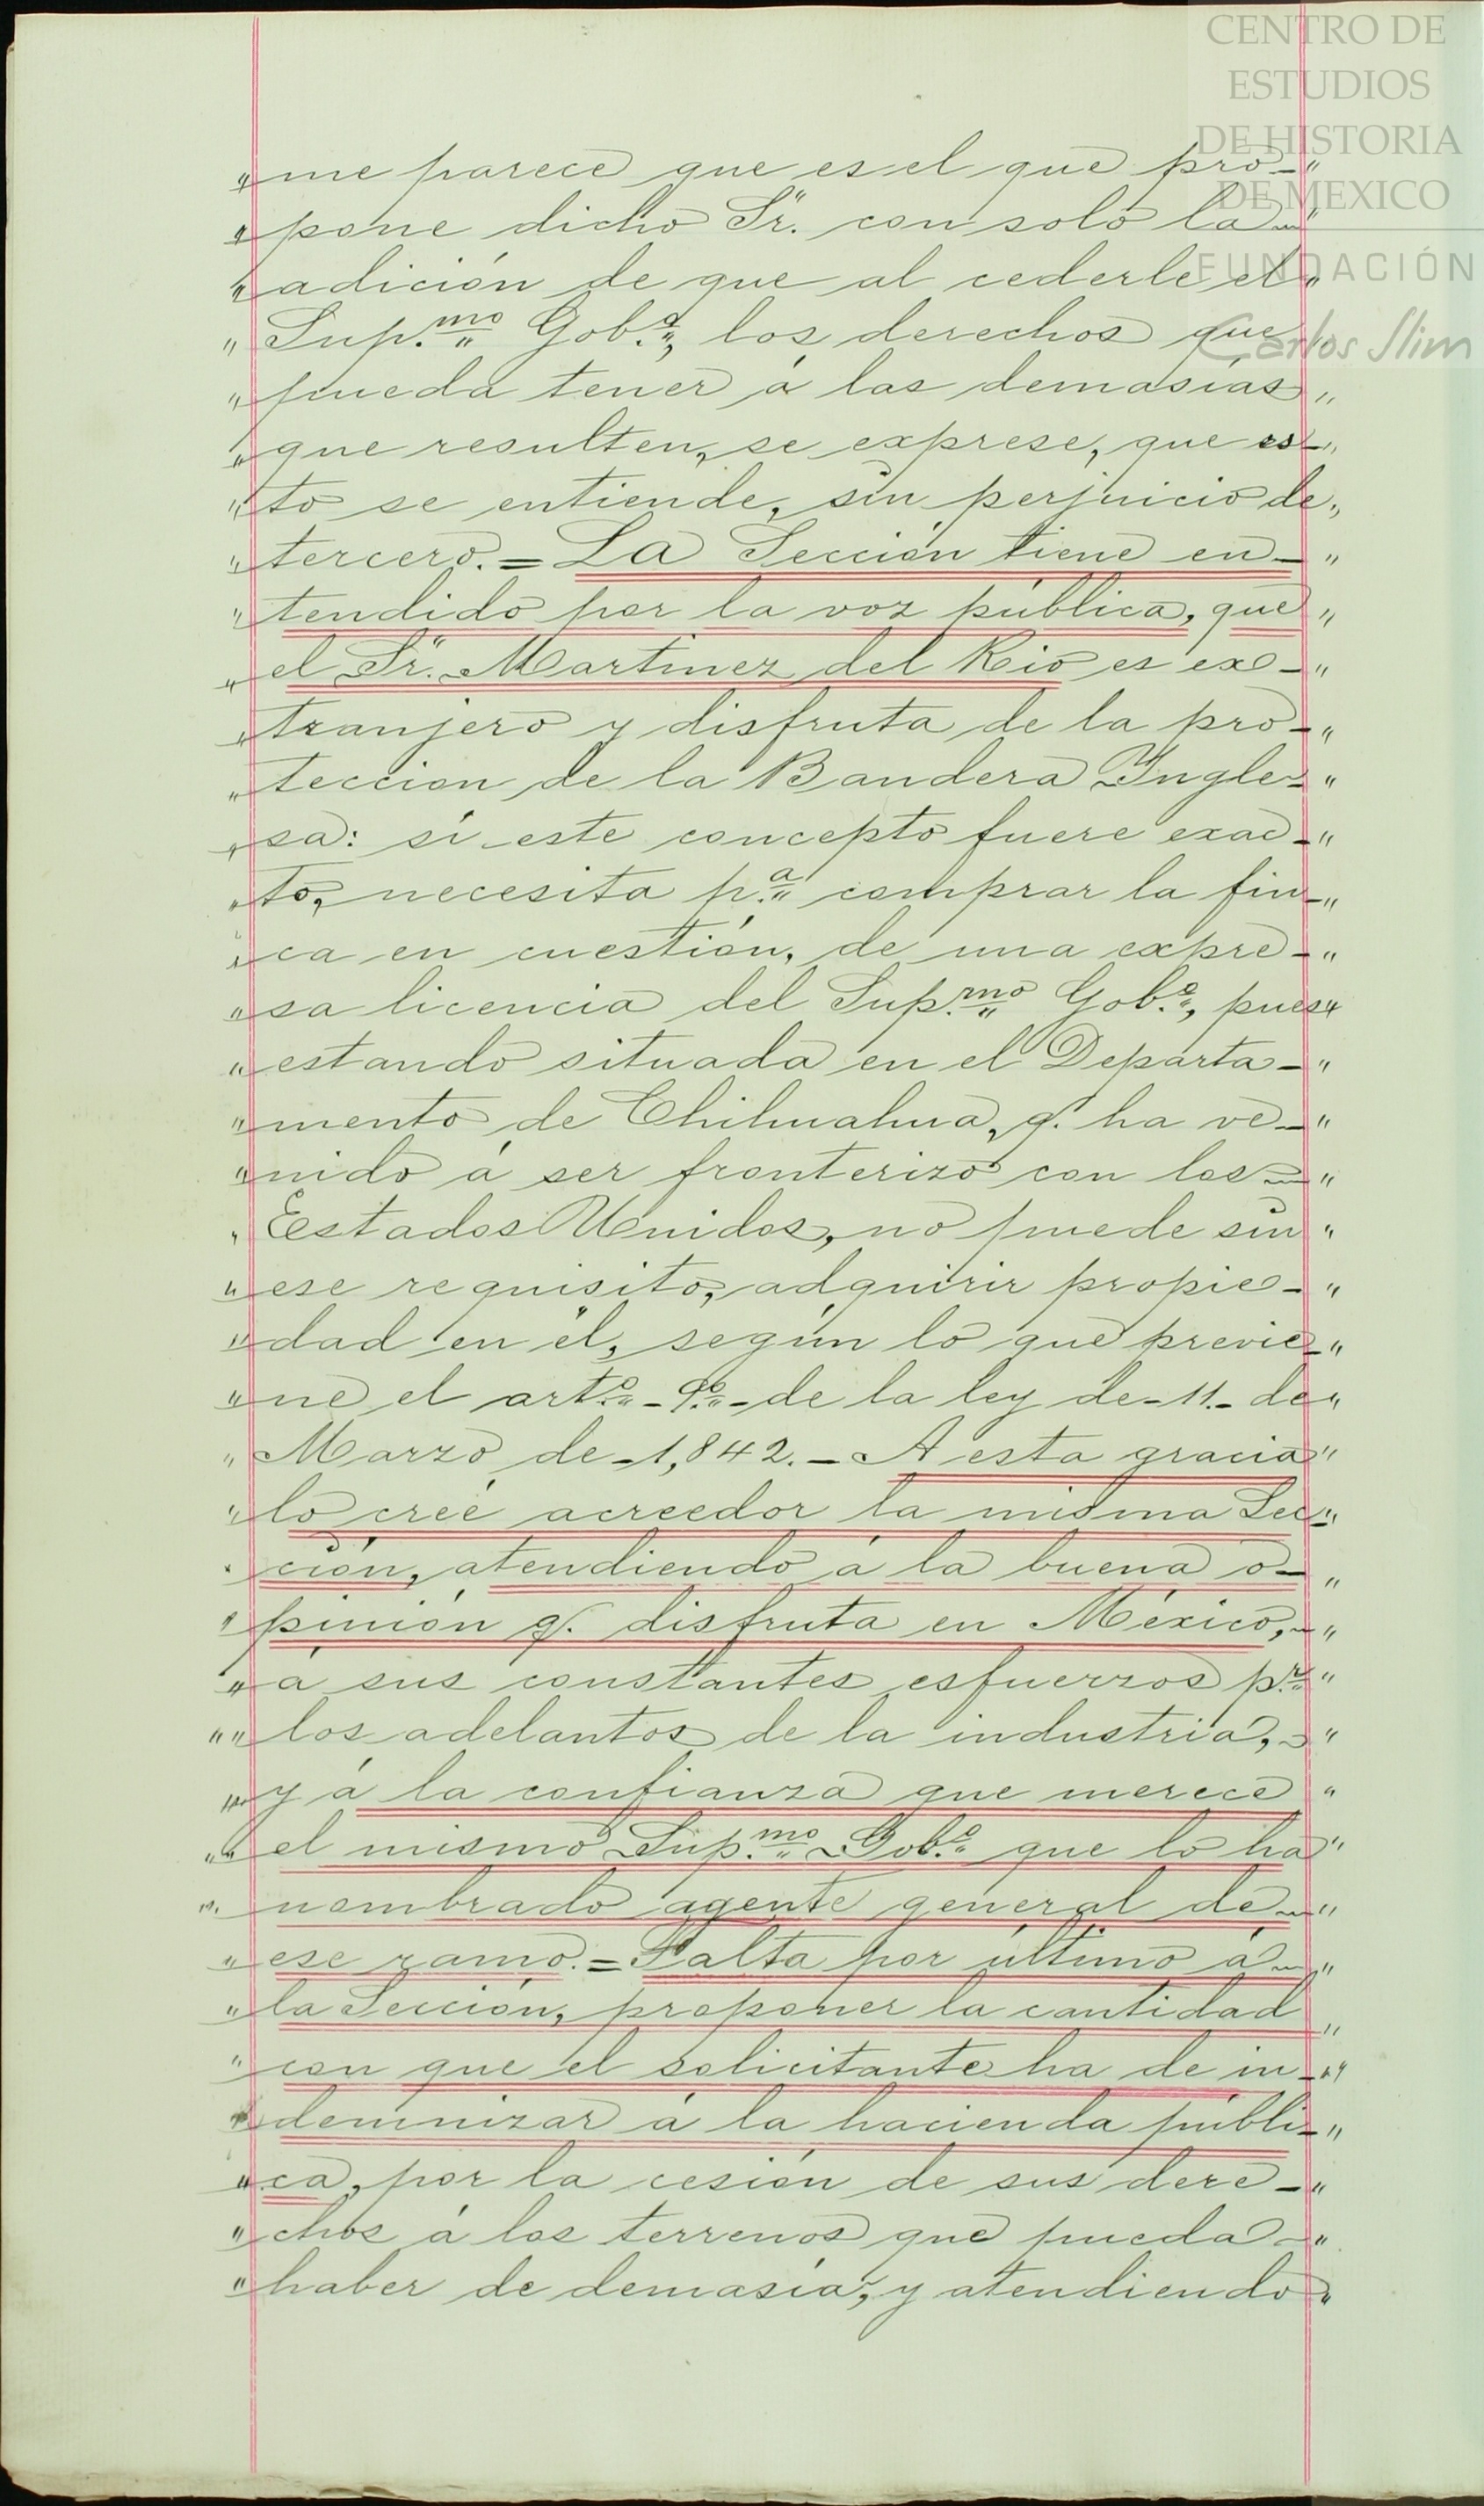 CENTRO DE
ESTUDIOS
DE HISTORIA
DE MEXICO
FUNDACIÓN
Carlos Slim
"me parece que es el que pro-"
"pone dicho Sr. con solo la"
"adición de que al cederle el"
"Sup.mo Gob.o, los derechos que"
"pueda tener á las demasías"
"que resulten, se exprese, que es-"
"to se entiende, sin perjuicio de"
"tercero.=La Sección tiene en-"
"tendido por la voz pública, que"
"el Sr. Martinez del Rio es ex-"
"tranjero y disfruta de la pro-"
"teccion de la Bandera Ingle-"
"sa: si este concepto fuere exac-"
"to, necesita p.a comprar la fin-"
"ca en cuestión, de una expre-"
"sa licencia del Sup.mo Gob.o, pues"
"estando situada en el Departa-"
"mento de Chihuahua, q. ha ve-"
"nido á ser fronterizo con los"
"Estados Unidos, no puede sin"
"ese requisito, adquirir propie-"
"dad en él, según lo que previe-"
"ne el art.o-9.o-de la ley de-11.-de"
"Marzo de-1,842.-A esta gracia"
"lo creé acreedor la misma Sec-"
"ción, atendiendo á la buena o-"
"pinión q. disfruta en México,"
"a sus constantes esfuerzos p.r"
"los adelantos de la industria,"
"y á la confianza que merece"
"el mismo Sup.mo Gob.o que lo ha"
"nombrado agente general de"
"ese ramo.=Falta por último á"
"la Sección, proponer la cantidad"
"con que el solicitante ha de in-"
"demnizar á la hacienda públi-"
"ca, por la cesión de sus dere-"
"chos á los terrenos que pueda"
"haber de demasía, y atendiendo"